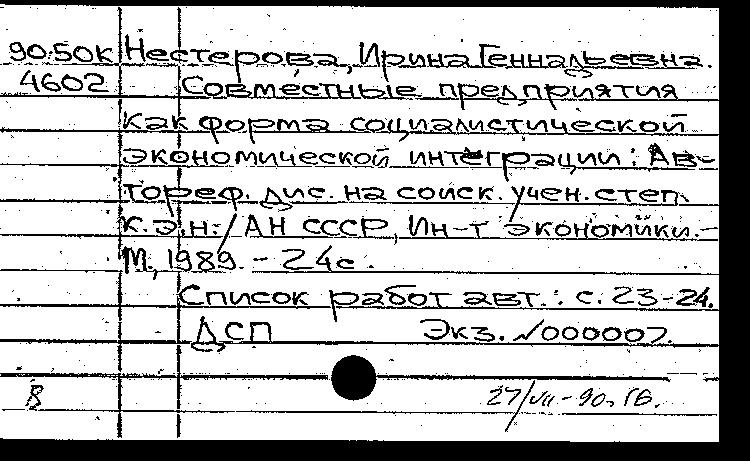 90-50к Нестерова, Ирина Геннадьевна.
4602 Совместные предприятия
как форма социалистической
экономической интеграции: Ав-
тореф. дис. на соиск. учен. степ.
к.э.н. / АН СССР, Ин-т экономики.-
М., 1989. - 24с.
Список работ авт.: с. 23-24.
ДСП Экз. №000007.
8 27/VII-90. ГБ.